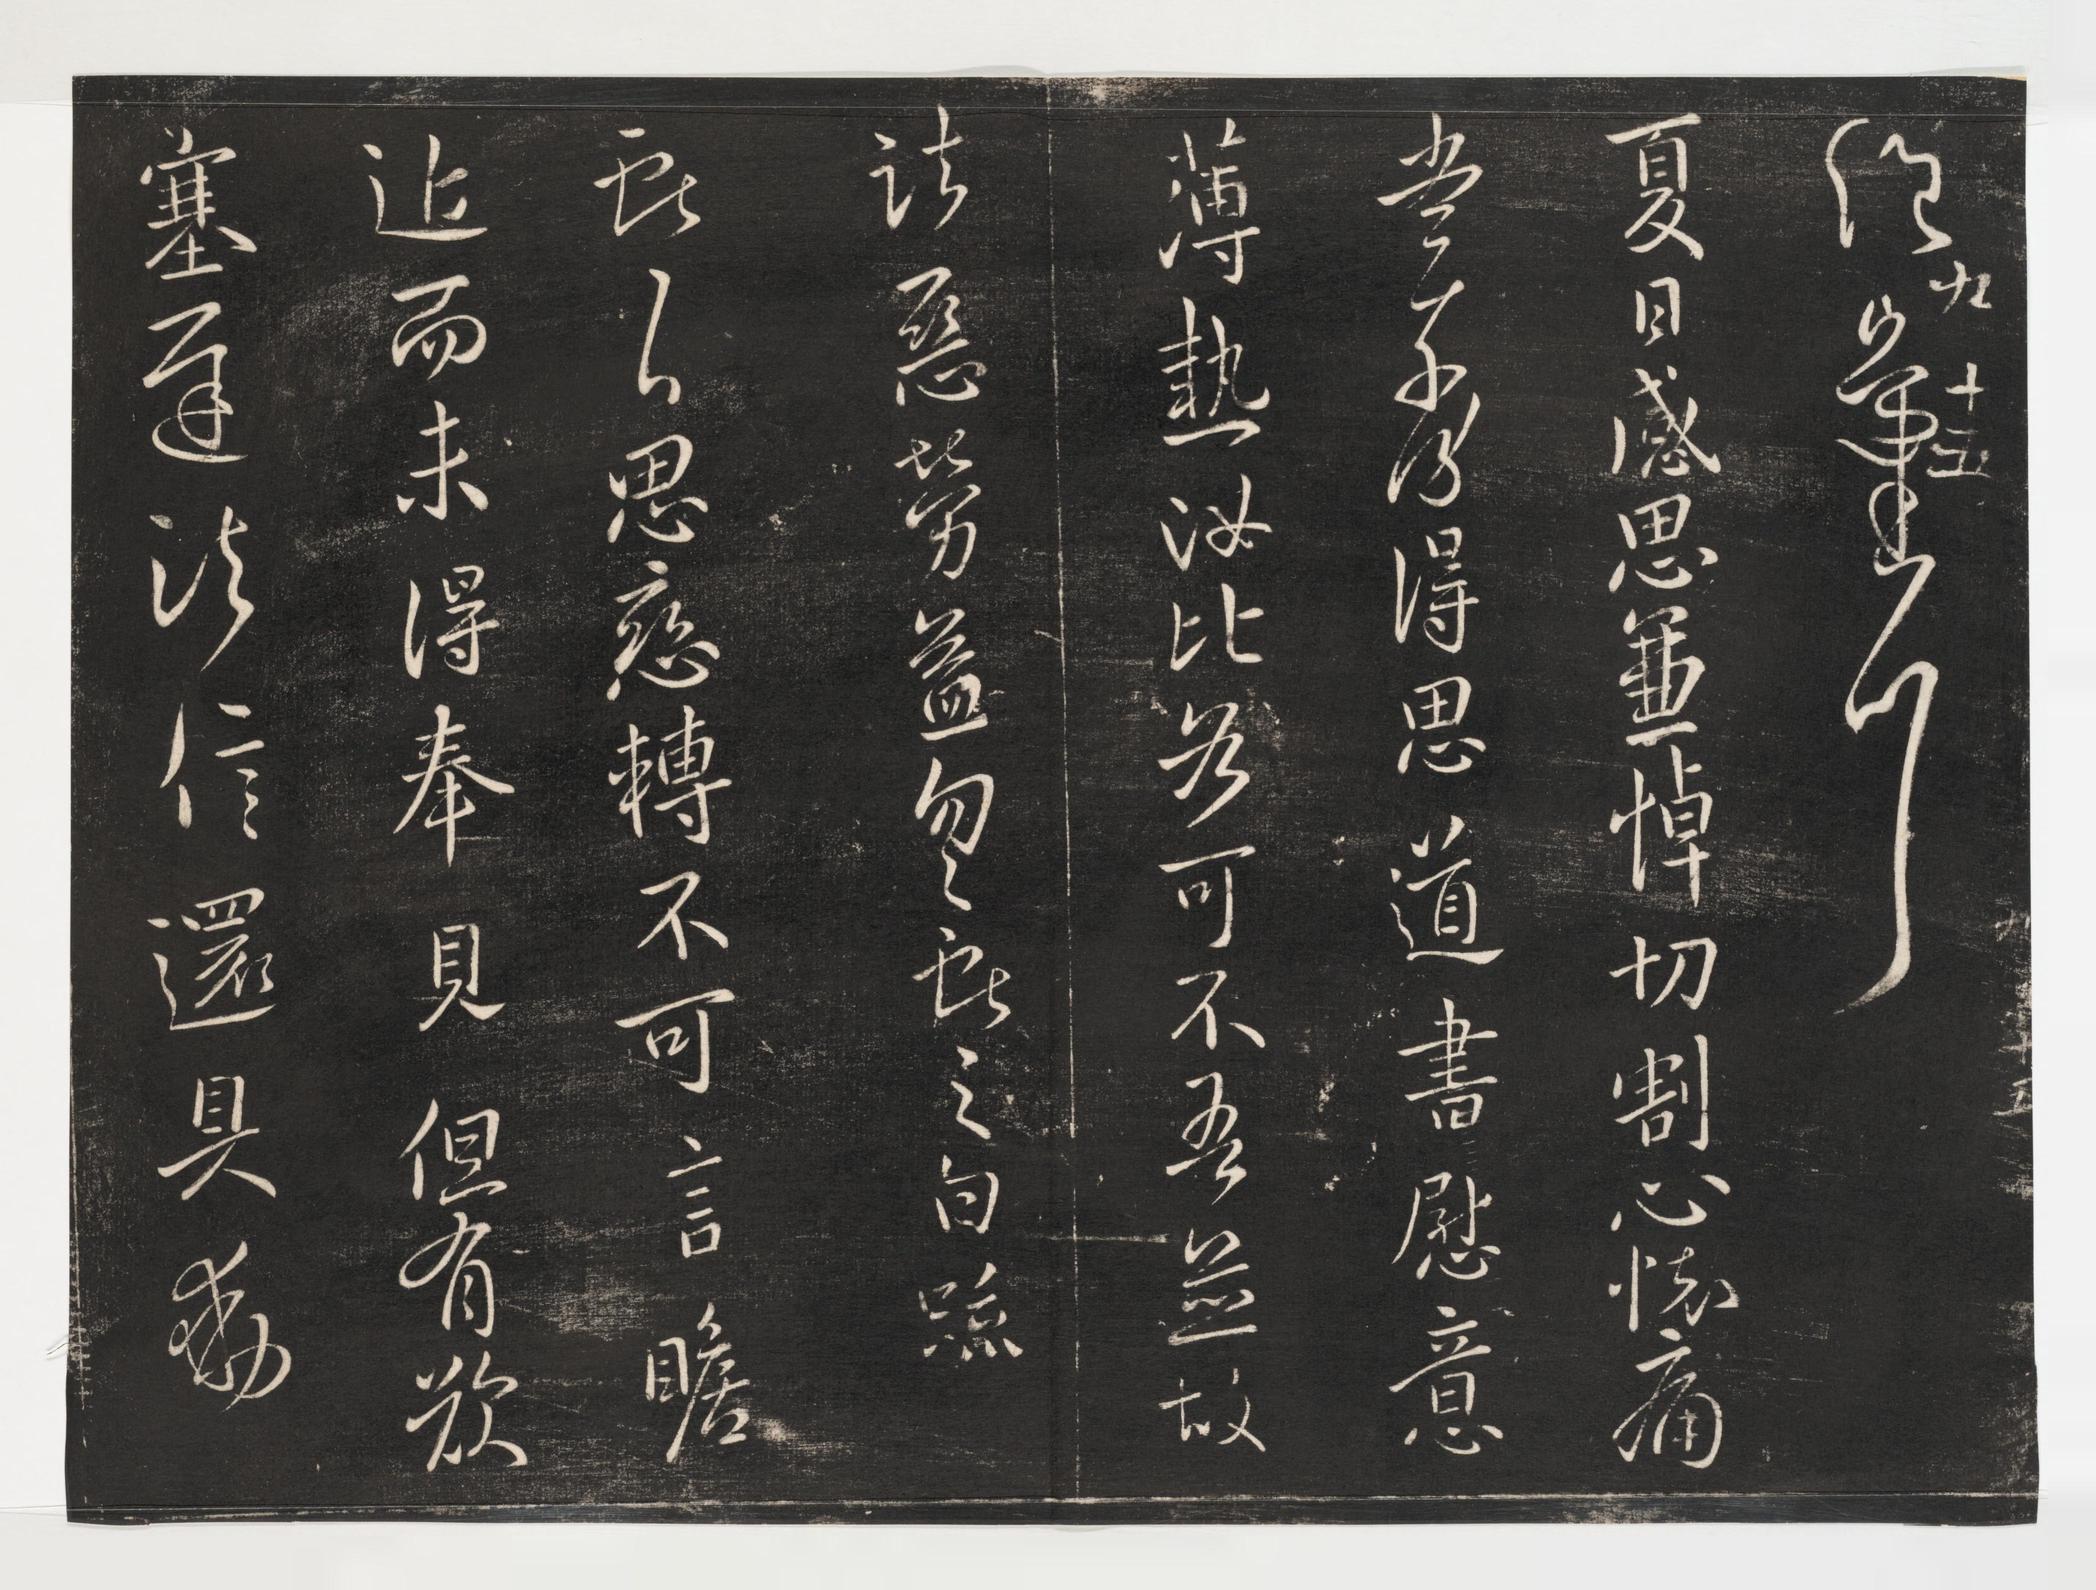 九
十五
夏日感思兼悼切割心懷痛
當奈何得思道書慰意
薄熱汝比各可不吾並故
諸惡勞益勿〻獻之白疏
獻之思戀轉不可言瞻
近而未得奉見但有歎
塞遲諸信還具動